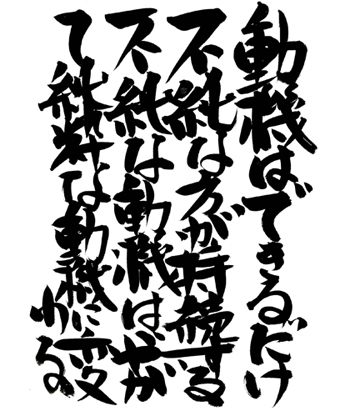 動機はできるだけ
不純な方が持続する
不純な動機はやが
て純粋な動機に変
わる